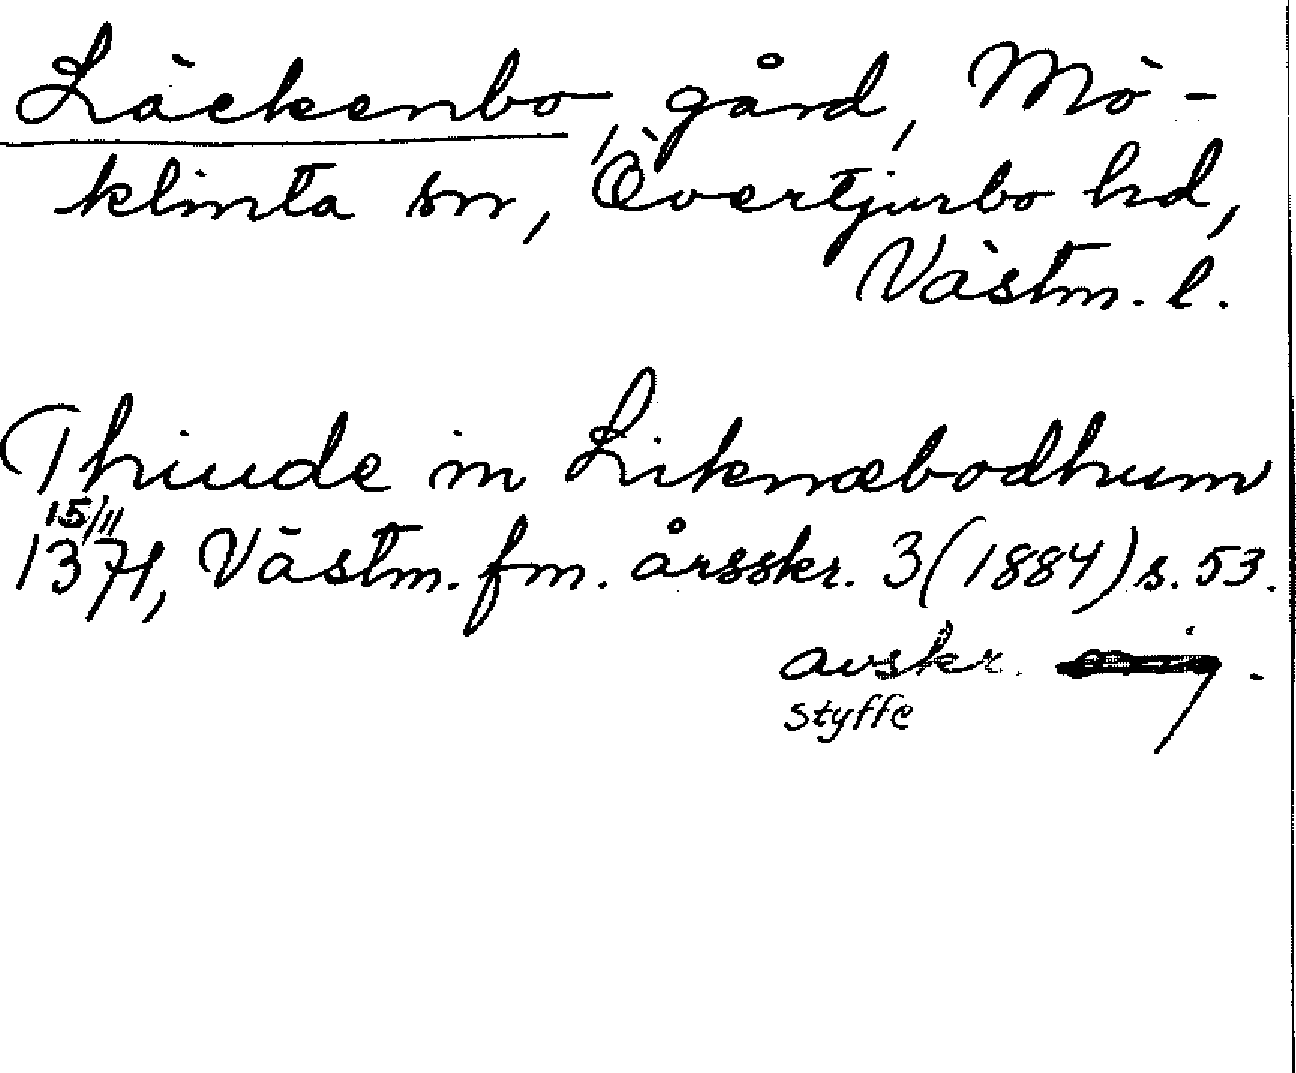 Läckenbo, gård, Mö-
klinta sn, Övertjurbo hd,
Västm. l.
Thiude in Liknæbodhum
15/11
1371, Västm. fm. årsskr. 3 (1884) s. 53.
avskr.
Styffe